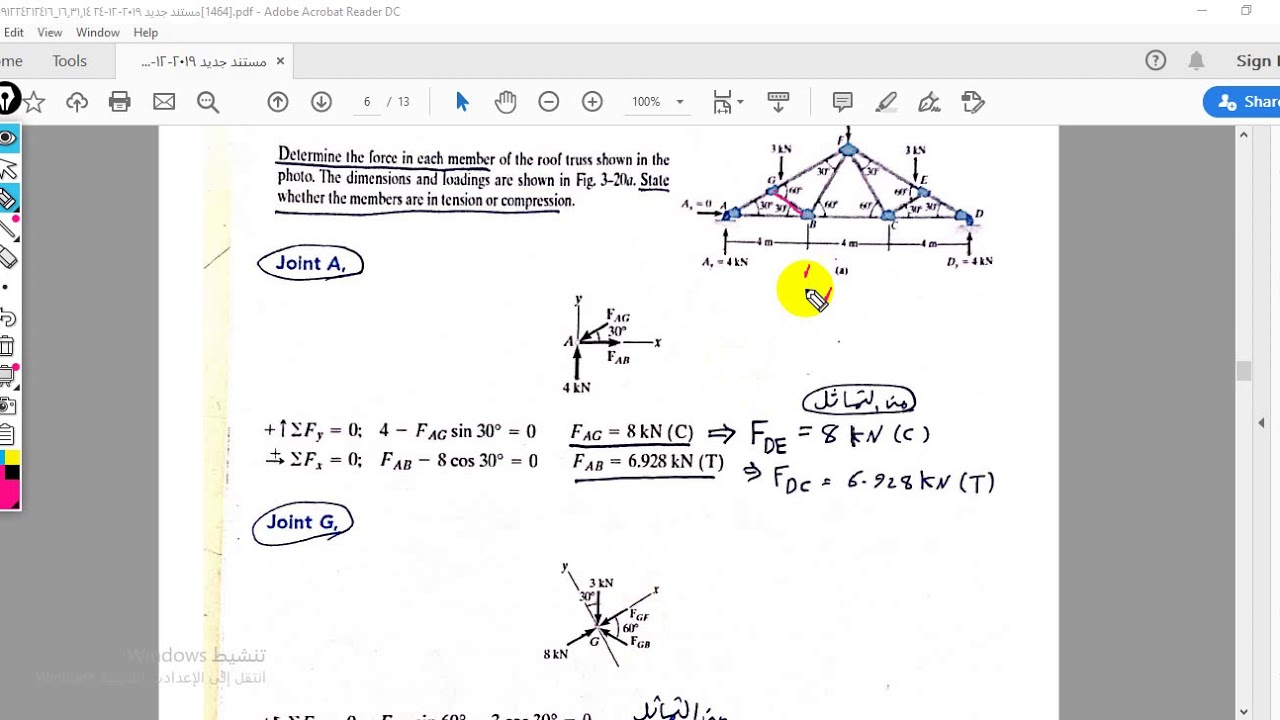 مستند جديد ٢٠١٩-١٢-٢٤ ١٦,٣١,١٤_٩١٢٢٤٢١٢٤١٦[1464].pdf - Adobe Acrobat Reader DC
Edit View Window Help
ome Tools مستند جديد ٢٠١٩-١٢-... × Sign I
6 / 13 100% Shar
Determine the force in each member of the roof truss shown in the
photo. The dimensions and loadings are shown in Fig. 3-20a. State
whether the members are in tension or compression.
F
3 kN 3 kN
30° 30°
G E
60° 60°
Aₓ = 0 A 30° 30° 60° 60° 30° 30° D
B C
4 m 4 m 4 m
Aᵧ = 4 kN (a) Dᵧ = 4 kN
Joint A,
y
F_AG
30°
A x
F_AB
4 kN
من التماثل
+↑ΣF_y = 0; 4 − F_AG sin 30° = 0 F_AG = 8 kN (C) ⇒ F_DE = 8 kN (C)
→+ ΣF_x = 0; F_AB − 8 cos 30° = 0 F_AB = 6.928 kN (T) ⇒ F_DC = 6.928 kN (T)
Joint G,
y
3 kN x
30°
F_GF
60°
G F_GB
8 kN
تنشيط Windows
من التماثل